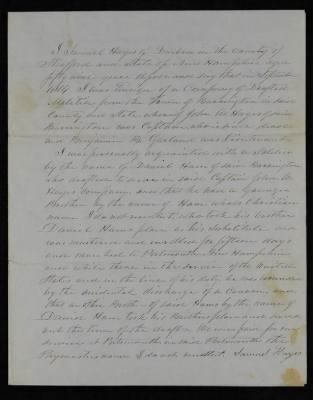 I Samuel Hayes of Durham in the County of
Strafford and State of New Hampshire aged
fifty nine years depose and say that in September
1814 I was Ensign of a Company of Drafted
Militia from the Town of Barrington in said
County and State whereof John W. Hayes of said
Barrington was Captain who is since dead
and Benjamin W. Garland was Lieutenant
I was personally acquainted with a Soldier
by the name of Daniel Ham of said Barrington
who drafted to serve in said Captain John W.
Hayes company and that he had a Younger
Brother by the name of Ham whose Christian
name I do not recollect who took his brother
Daniel Hams place as his Substitute and
was mustered and enrolled for fifteen days
and marched to Portsmouth New Hampshire
and while there in the service of the United
States and in the line of his duty he was wounded
by the accidental discharge of a Cannon and
that another Brother of said Hams by the name of
Daniel Ham took his Brothers place and served
out the time of the draft. He was paid for said
service at Portsmouth in said Portsmouth the
Paymasters name I do not recollect. Samuel Hayes